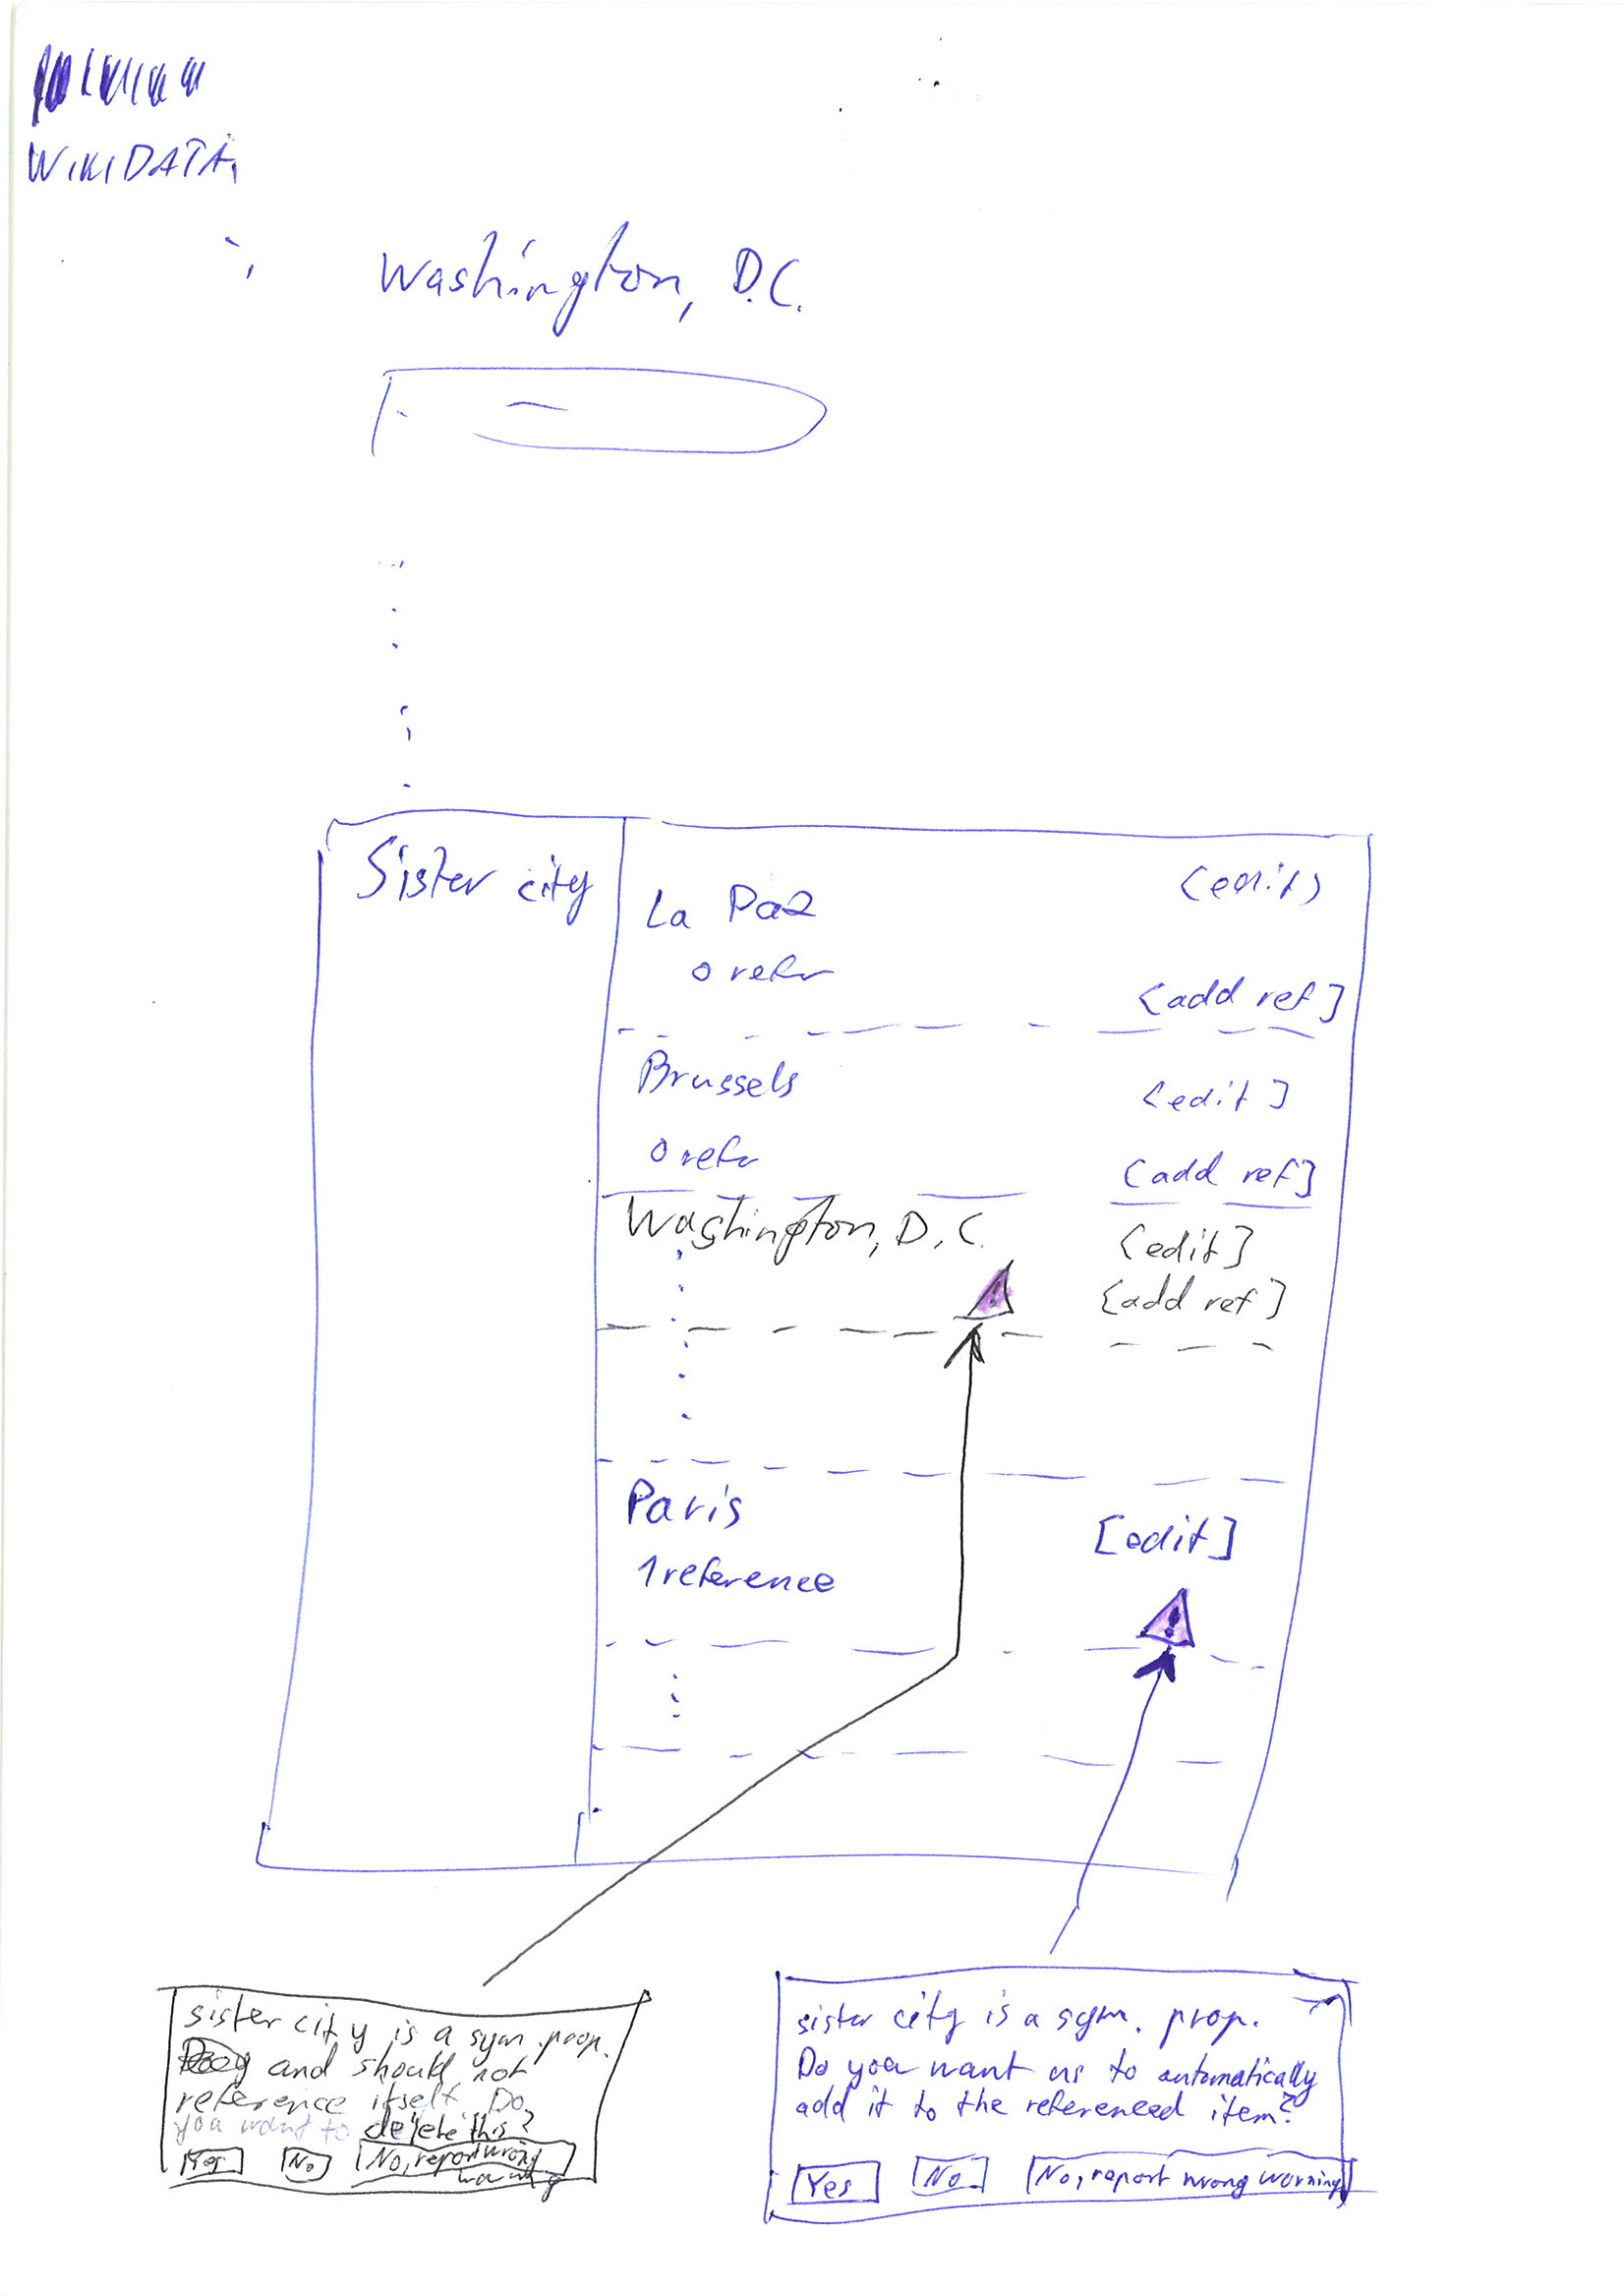 WIKIDATA
Washington, D.C.
Sister city
La Paz
(edit)
0 refs
[add ref]
Brussels
[edit]
0 refs
[add ref]
Washington, D.C.
[edit]
[add ref]
Paris
[edit]
1 reference
!
sister city is a sym. prop.
and should not
reference itself. Do
you want to delete this?
Yes
No
No, report wrong
warning
sister city is a sym. prop.
Do you want us to automatically
add it to the referenced item?
Yes
No
No, report wrong warning